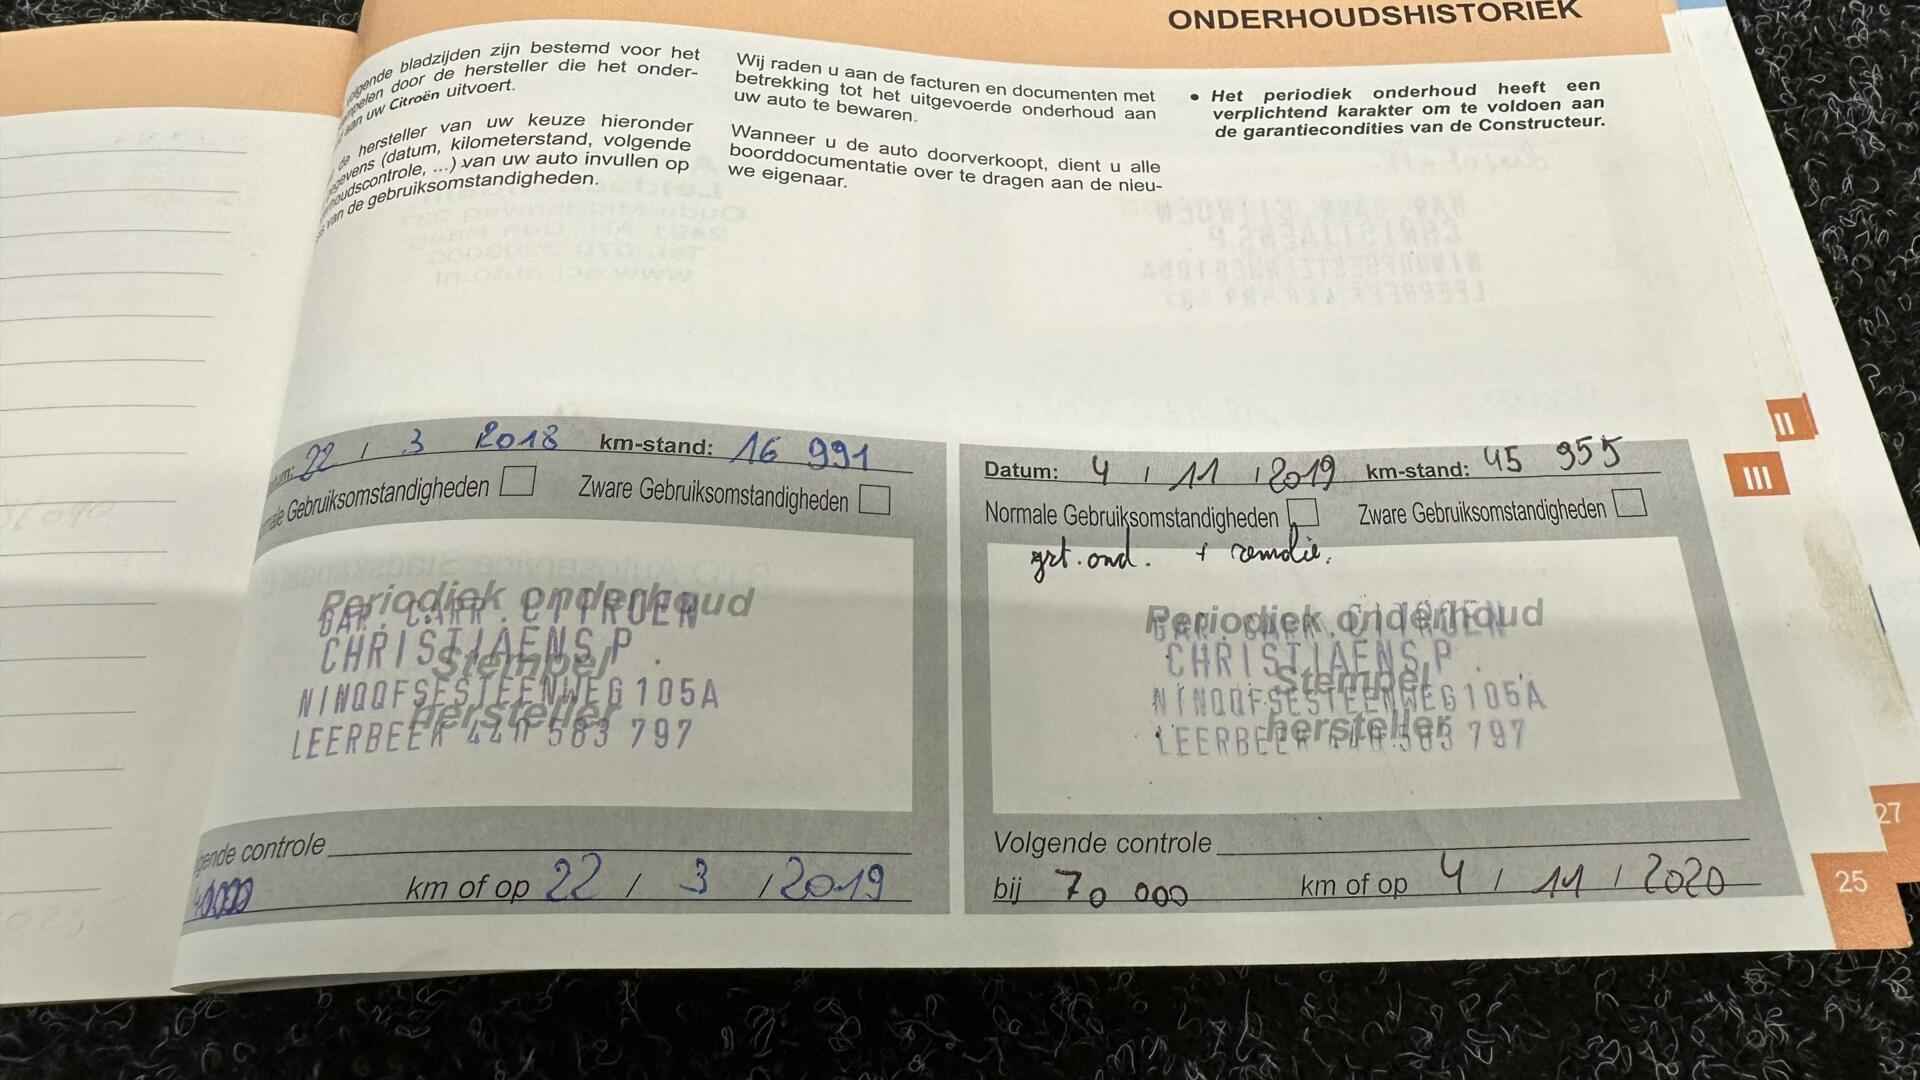 ONDERHOUDSHISTORIEK
bladzijden zijn bestemd voor het
door de hersteller die het onder-
aan uw Citroën uitvoert.
de hersteller van uw keuze hieronder
(datum, kilometerstand, volgende
...) van uw auto invullen op
van de gebruiksomstandigheden.
Wij raden u aan de facturen en documenten met
betrekking tot het uitgevoerde onderhoud aan
uw auto te bewaren.
Wanneer u de auto doorverkoopt, dient u alle
boorddocumentatie over te dragen aan de nieu-
we eigenaar.
• Het periodiek onderhoud heeft een
verplichtend karakter om te voldoen aan
de garantiecondities van de Constructeur.
II
III
22 / 3 2018 km-stand: 16 991
Gebruiksomstandigheden Zware Gebruiksomstandigheden
Periodiek onderhoud
Stempel
hersteller
GAR. CARR. CITROEN
CHRISTIAENS P.
NINOOFSESTEENWEG 105A
LEERBEEK 583 797
controle
km of op 22 / 3 / 2019
Datum: 4 / 11 / 2019 km-stand: 45 955
Normale Gebruiksomstandigheden Zware Gebruiksomstandigheden
grt. ond. +
Periodiek onderhoud
Stempel
hersteller
CITROEN
CHRISTIAENS P.
NINOOFSESTEENWEG 105A
LEERBEEK 583 797
Volgende controle
bij 70 000 km of op 4 / 11 / 2020
27
25